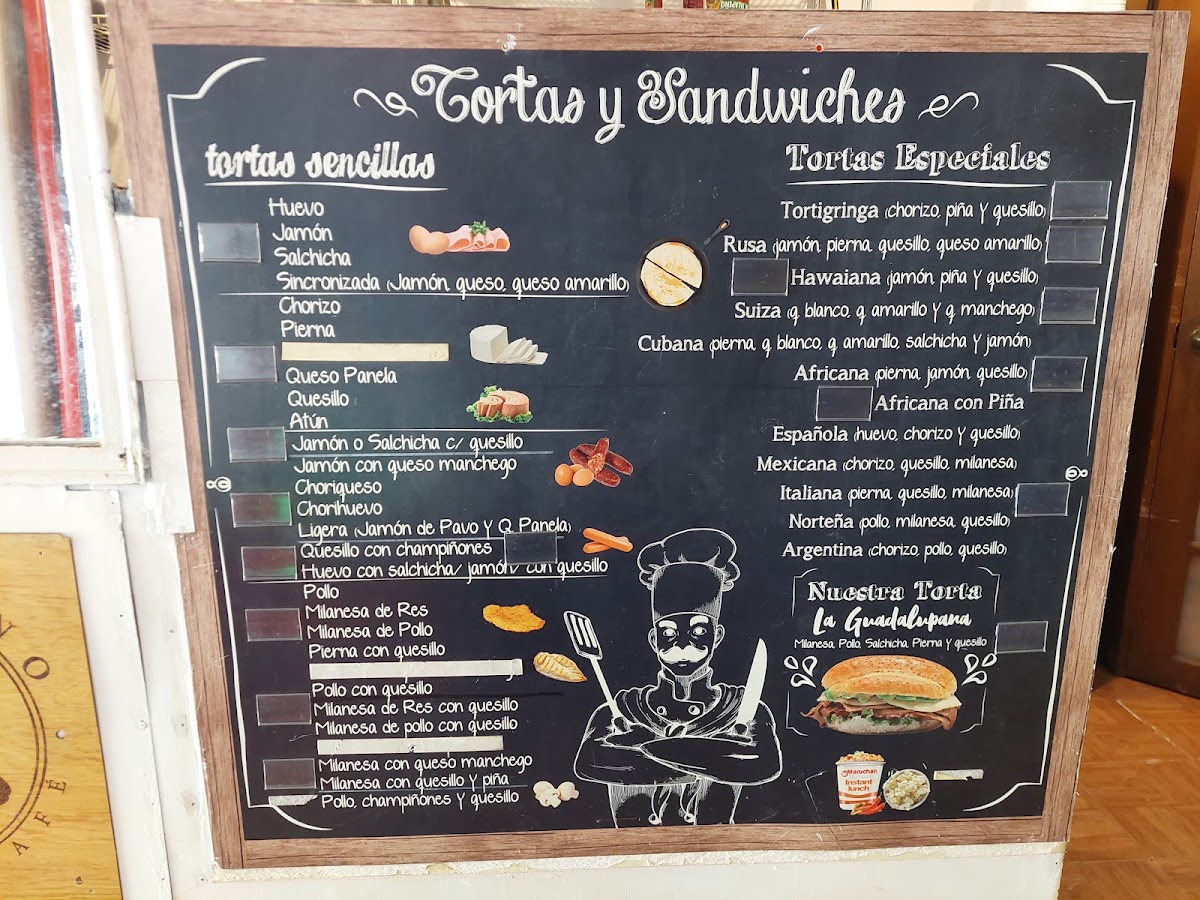 Tortas y Sandwiches
tortas sencillas
Huevo
Jamón
Salchicha
Sincronizada (Jamón, queso, queso amarillo)
Chorizo
Pierna
Queso Panela
Quesillo
Atún
Jamón o Salchicha c/ quesillo
Jamón con queso manchego
Choriqueso
Chorihuevo
Ligera (Jamón de Pavo y Q. Panela)
Quesillo con champiñones
Huevo con salchicha/ jamón/ con quesillo
Pollo
Milanesa de Res
Milanesa de Pollo
Pierna con quesillo
Pollo con quesillo
Milanesa de Res con quesillo
Milanesa de pollo con quesillo
Milanesa con queso manchego
Milanesa con quesillo y piña
Pollo, champiñones y quesillo
Tortas Especiales
Tortigringa (chorizo, piña y quesillo)
Rusa (jamón, pierna, quesillo, queso amarillo)
Hawaiana (jamón, piña y quesillo)
Suiza (q. blanco, q. amarillo y q. manchego)
Cubana (pierna, q. blanco, q. amarillo, salchicha y jamón)
Africana (pierna, jamón, quesillo)
Africana con Piña
Española (huevo, chorizo y quesillo)
Mexicana (chorizo, quesillo, milanesa)
Italiana (pierna, quesillo, milanesa)
Norteña (pollo, milanesa, quesillo)
Argentina (chorizo, pollo, quesillo)
Nuestra Torta
La Guadalupana
Milanesa, Pollo, Salchicha, Pierna y quesillo
Maruchan
Instant
lunch